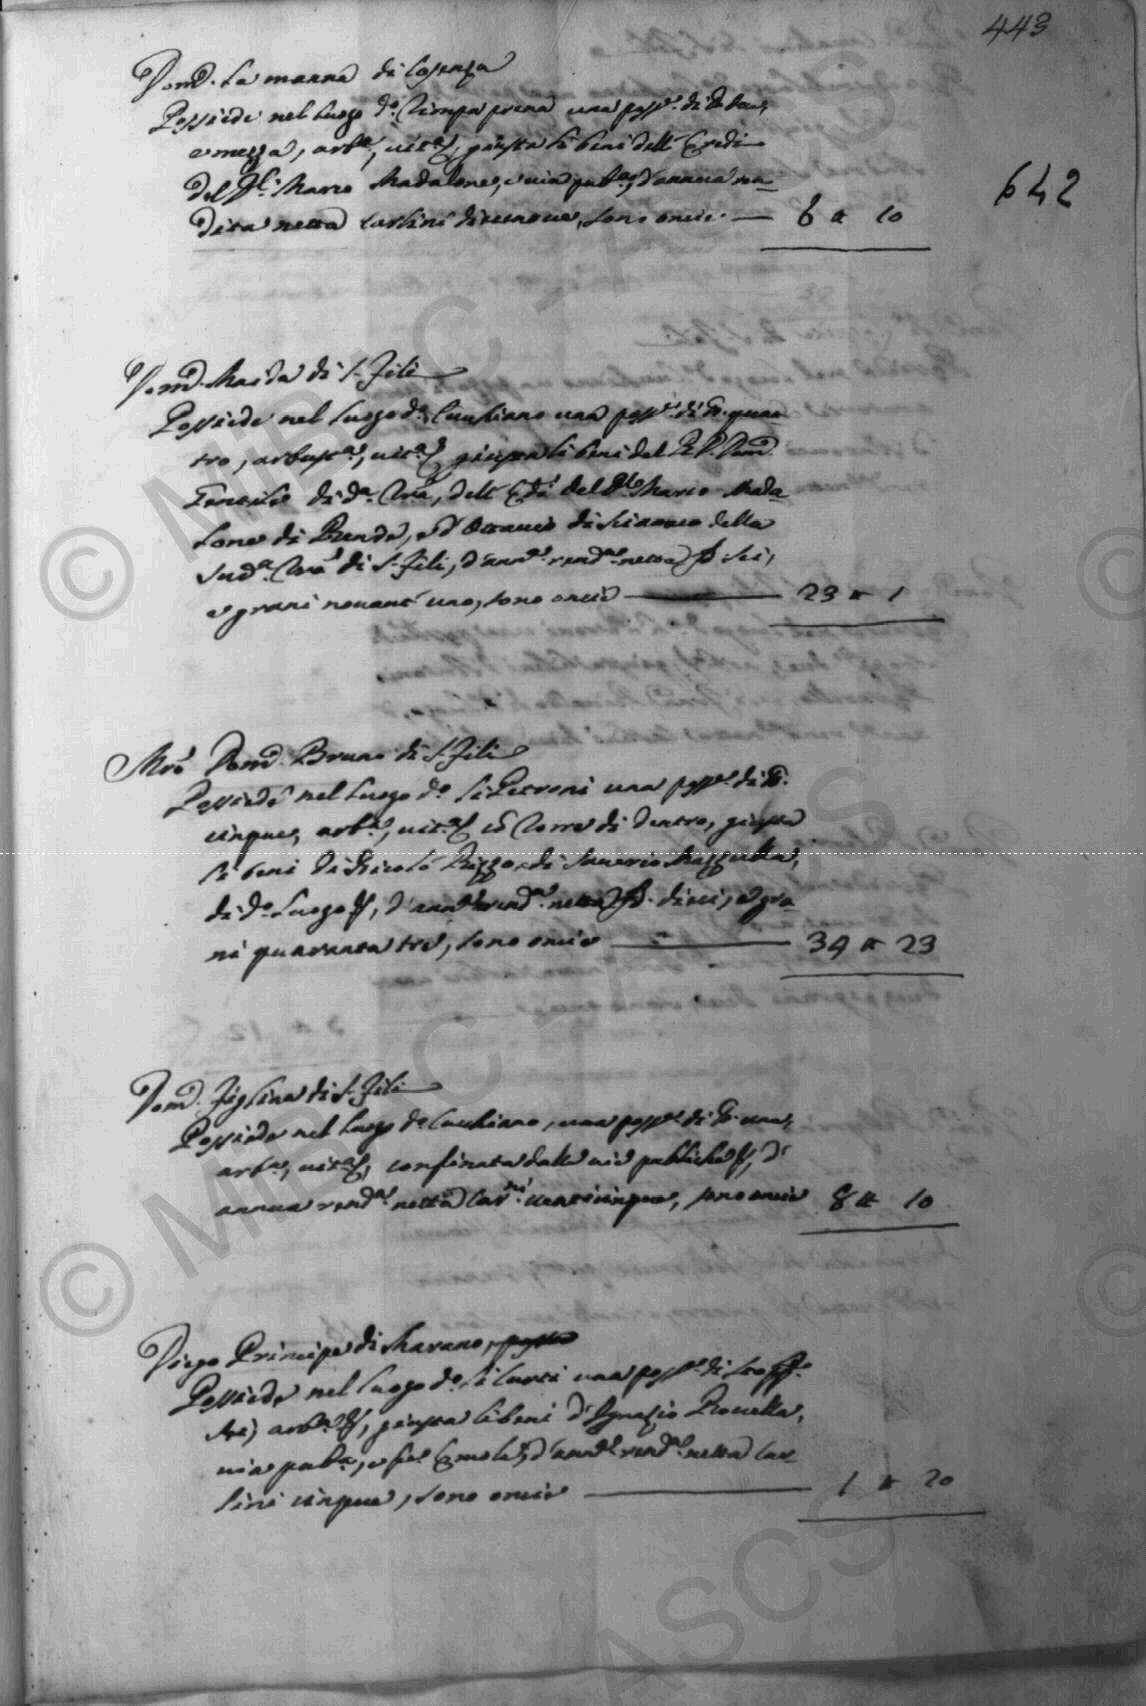 443
Dom.º La manna di Cosenza
Possiede nel luogo d.º Timpa prena una poss.e di t.a due,
e mezza, arb.a, vit.a &, giusta li beni dell' Eredi
del q.m Marco Madalone, e via pub.a &, d'annua ren-
dita netta carlini diecenove, sono oncie — 6 " 10
642
Dom.º Maida di S. Fili
Possiede nel luogo d.º Cauliano una poss.e di t.a quat
tro, arbust.a, vit.a &, giusta li beni del R. D. Dom.º
di d.a T.ra, dell' Ered.i del q.m Marco Mada-
lone di Rende, e d' Ottavio di Sciammo della
sud.a T.ra di S. Fili, d'ann.a rend.a netta D. sei,
e grani novant' uno, sono oncie — 23 " 1
Mro Dom.º Bruno di S. Fili
Possiede nel luogo d.º li Petroni una poss.e di t.a
cinque, arb.a, vit.a & cō Torre di dentro, giusta
li beni di Nicolò Rizzo, e di Saverio Mazzulla,
di d.º luogo &, d'ann.a rend.a netta D. dieci, e gra-
ni quaranta tre, sono oncie — 34 " 23
Dom.º Figlino di S. Fili
Possiede nel luogo d.º Cauliano, una poss.e di t.a una,
arb.a, vit.a &, confinata dalle vie publiche &, d'
annua rend.a netta Car.ni venticinque, sono oncie 8 " 10
Diego Principe di Marano,
Possiede nel luogo d.º li Curti una poss.e di
tre, arb.a &, giusta li beni d' Ignazio Rovella,
via pub.a, e d'ann.a rend.a netta car-
lini cinque, sono oncie — 1 " 20
© MIBAC - ASCS
© MIBAC - ASCS